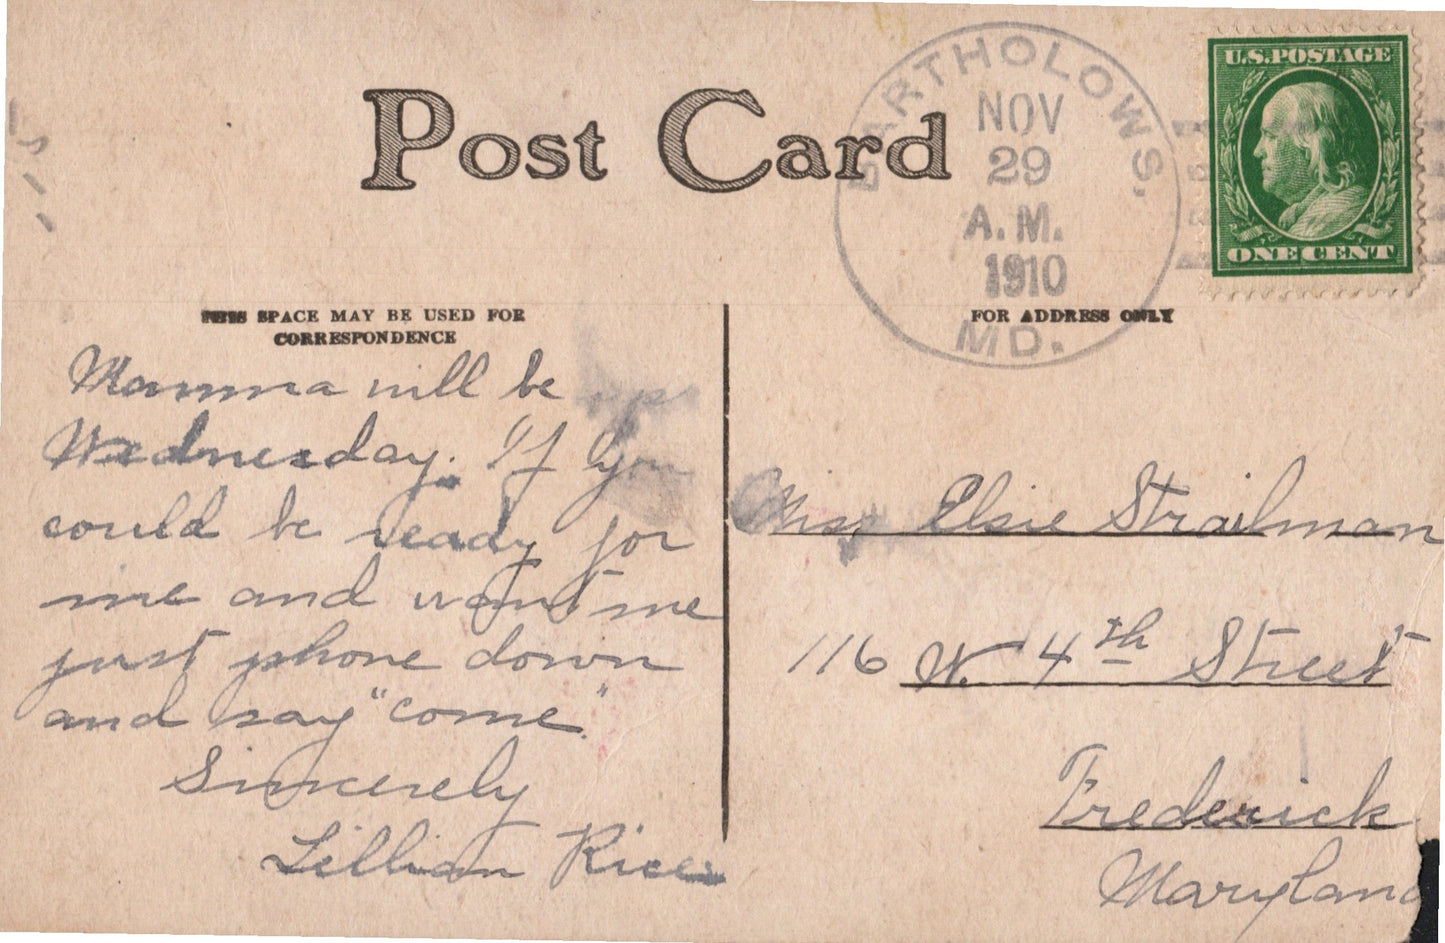 Post Card
BARTHOLOWS,
NOV
29
A.M.
1910
MD.
U.S. POSTAGE
ONE CENT
THIS SPACE MAY BE USED FOR
CORRESPONDENCE
FOR ADDRESS ONLY
Mamma will be up
Wednesday. If you
could be ready for
me and want me
just phone down
and say "come."
Sincerely
Lillian Rice
Miss Elsie Strailman
116 W. 4th Street
Frederick
Maryland